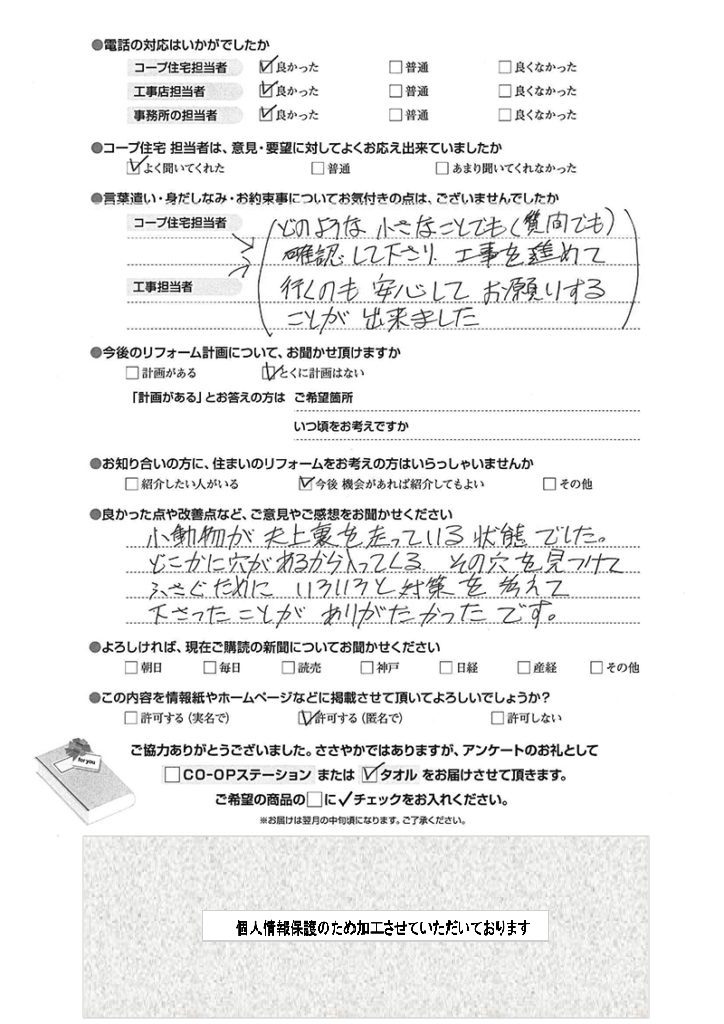 ●電話の対応はいかがでしたか
コープ住宅担当者 ☑良かった □普通 □良くなかった
工事店担当者 ☑良かった □普通 □良くなかった
事務所の担当者 ☑良かった □普通 □良くなかった
●コープ住宅 担当者は、意見・要望に対してよくお応え出来ていましたか
☑よく聞いてくれた □普通 □あまり聞いてくれなかった
●言葉遣い・身だしなみ・お約束事についてお気付きの点は、ございませんでしたか
コープ住宅担当者
どのような 小さなことでも(質問でも)
確認して下さり、工事を進めて
工事担当者
行くのも 安心して お願いする
ことが 出来ました
●今後のリフォーム計画について、お聞かせ頂けますか
□計画がある ☑とくに計画はない
「計画がある」とお答えの方は ご希望箇所
いつ頃をお考えですか
●お知り合いの方に、住まいのリフォームをお考えの方はいらっしゃいませんか
□紹介したい人がいる ☑今後 機会があれば紹介してもよい □その他
●良かった点や改善点など、ご意見やご感想をお聞かせください
小動物が 天上裏を走っている 状態でした。
どこかに穴があるから入ってくる、その穴を見つけて
ふさぐために いろいろと対策を考えて
下さったことが ありがたかったです。
●よろしければ、現在ご購読の新聞についてお聞かせください
□朝日 □毎日 □読売 □神戸 □日経 □産経 □その他
●この内容を情報紙やホームページなどに掲載させて頂いてよろしいでしょうか?
□許可する(実名で) ☑許可する(匿名で) □許可しない
for you
ご協力ありがとうございました。ささやかではありますが、アンケートのお礼として
□CO-OPステーション または ☑タオル をお届けさせて頂きます。
ご希望の商品の□に✓チェックをお入れください。
※お届けは翌月の中旬頃になります。ご了承ください。
個人情報保護のため加工させていただいております